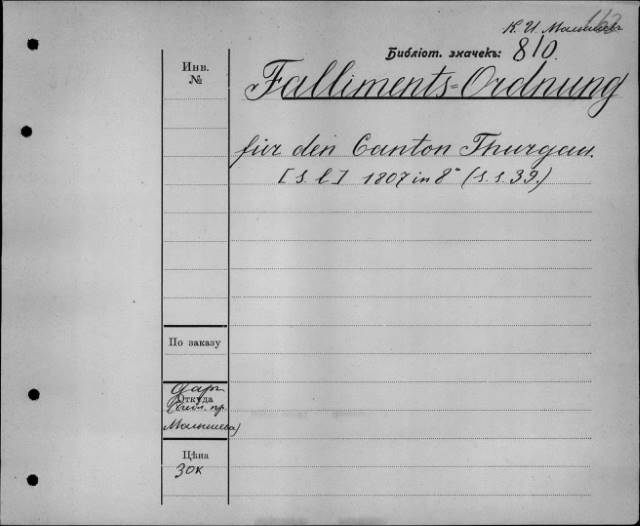 К. И. Малышевъ
Библіот. значекъ: 810.
Инв.
№
Falliments=Ordnung
für den Canton Thurgau.
[s. l.] 1807 in 8° (s. s. 39.)
По заказу
Даръ
Откуда
(библ. пр.
Малышева)
Цѣна
30к